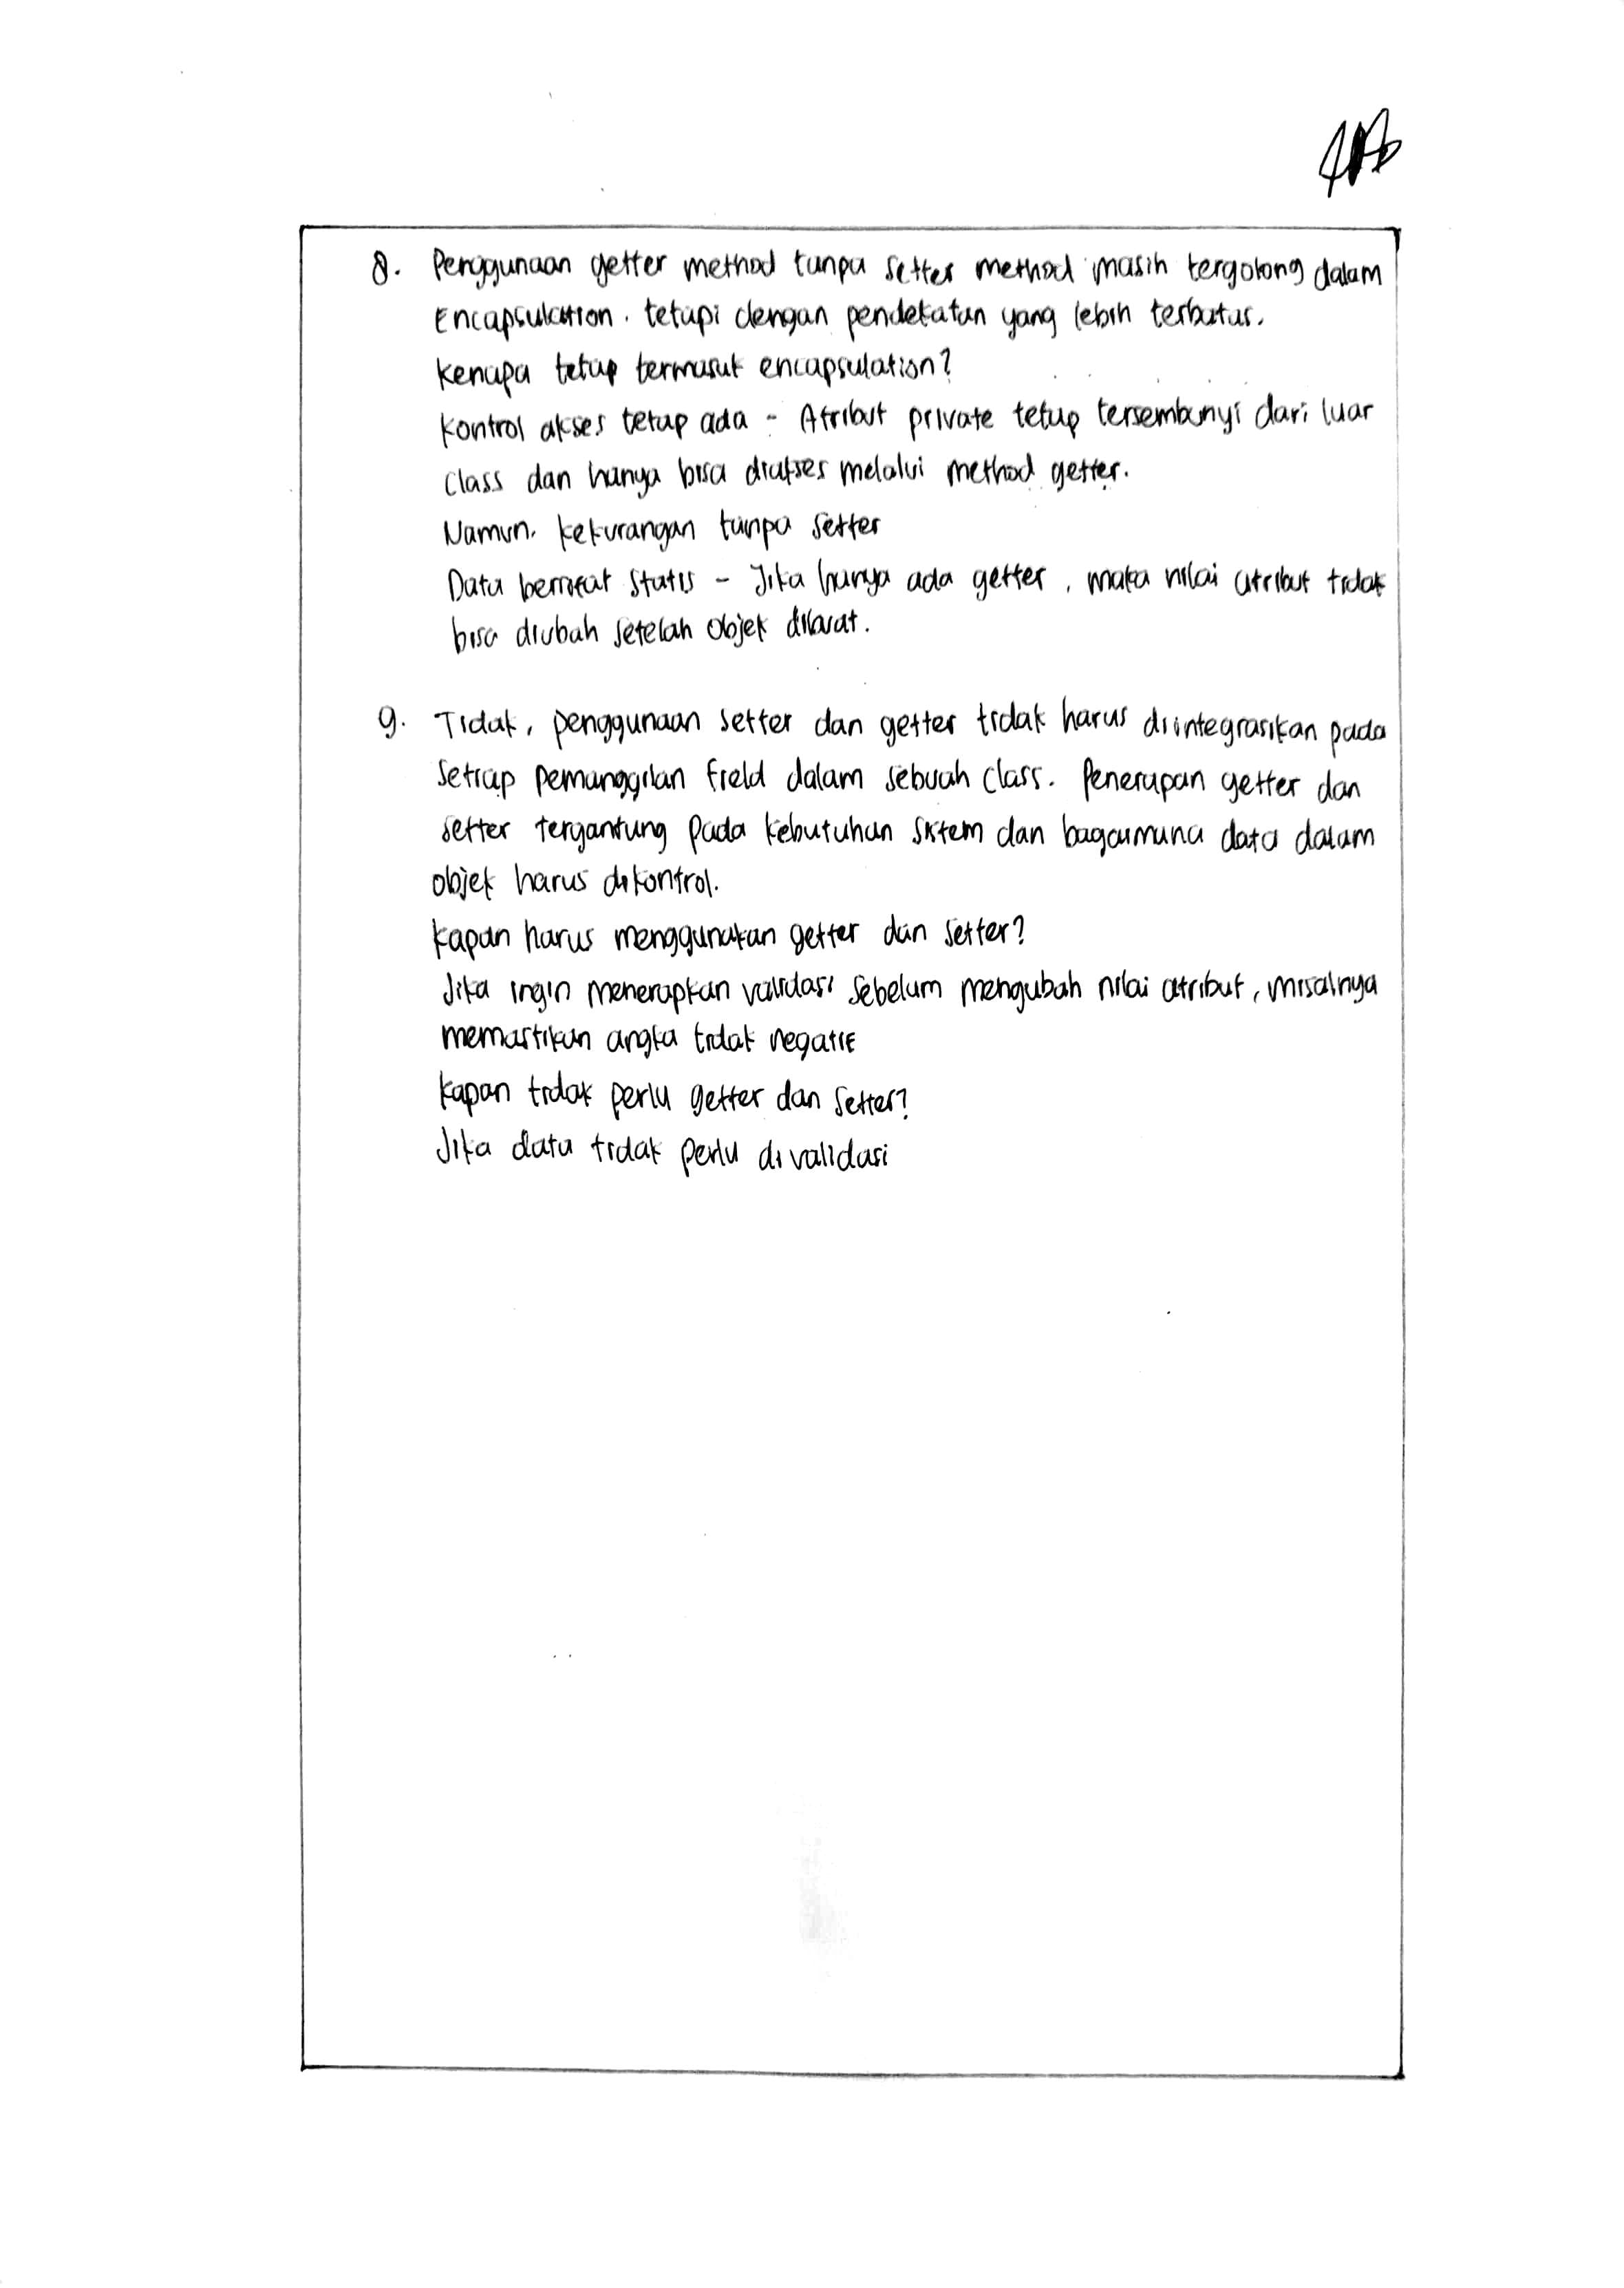 8. Penggunaan getter method tanpa setter method masih tergolong dalam
Encapsulation. tetapi dengan pendekatan yang lebih terbatas.
Kenapa tetap termasuk encapsulation?
Kontrol akses tetap ada - Atribut private tetap tersembunyi dari luar
class dan hanya bisa diakses melalui method getter.
Namun, kekurangan tanpa setter
Data bersifat statis - Jika hanya ada getter, maka nilai atribut tidak
bisa diubah setelah objek dibuat.
9. Tidak, penggunaan setter dan getter tidak harus diintegrasikan pada
setiap pemanggilan field dalam sebuah class. Penerapan getter dan
setter tergantung pada kebutuhan sistem dan bagaimana data dalam
objek harus dikontrol.
Kapan harus menggunakan getter dan setter?
Jika ingin menerapkan validasi sebelum mengubah nilai atribut, misalnya
memastikan angka tidak negatif
Kapan tidak perlu getter dan setter?
Jika data tidak perlu divalidasi